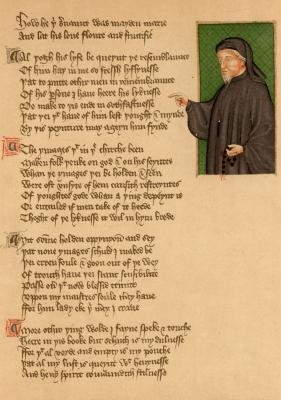 How he þi seruant was mayden marie
And lat his loue floure and fructifie
Al þogh his lyfe be queynt þe resemblaunce
Of him haþ in me so fressh lyflynesse
Þat to putte othir men in remembraunce
Of his persone I haue heere his lyknesse
Do make to þis ende in sothfastnesse
Þat þei þt haue of him left þought & mynde
By þis peynture may ageyn him fynde
The ymages þt in þe chirche been
Maken folk þenke on god & on his seyntes
Whan þe ymages þei be holden & seen
Were oft vnsyte of hem causith restreyntes
Of þoughtes gode whan a þing depeynt is
Or entailed if men take of it heede
Thoght of þe lyknesse it wil in hym brede
Yit somme holden oppynyon and sey
Þat none ymages schuld I maked be
Þei erren foule & goon out of þe wey
Of trouth haue þei scant sensibilite
Passe ouer þt now blessid trinite
Vpon my maistres soule mercy haue
For him lady eke þi mercy I craue
More othir þing wolde I fayne speke & touche
Heere in þis booke but schuch is my dulnesse
For þt al voyde and empty is my pouche
Þat al my lust is queynt wt heuynesse
And heuy spirit comaundith stilnesse